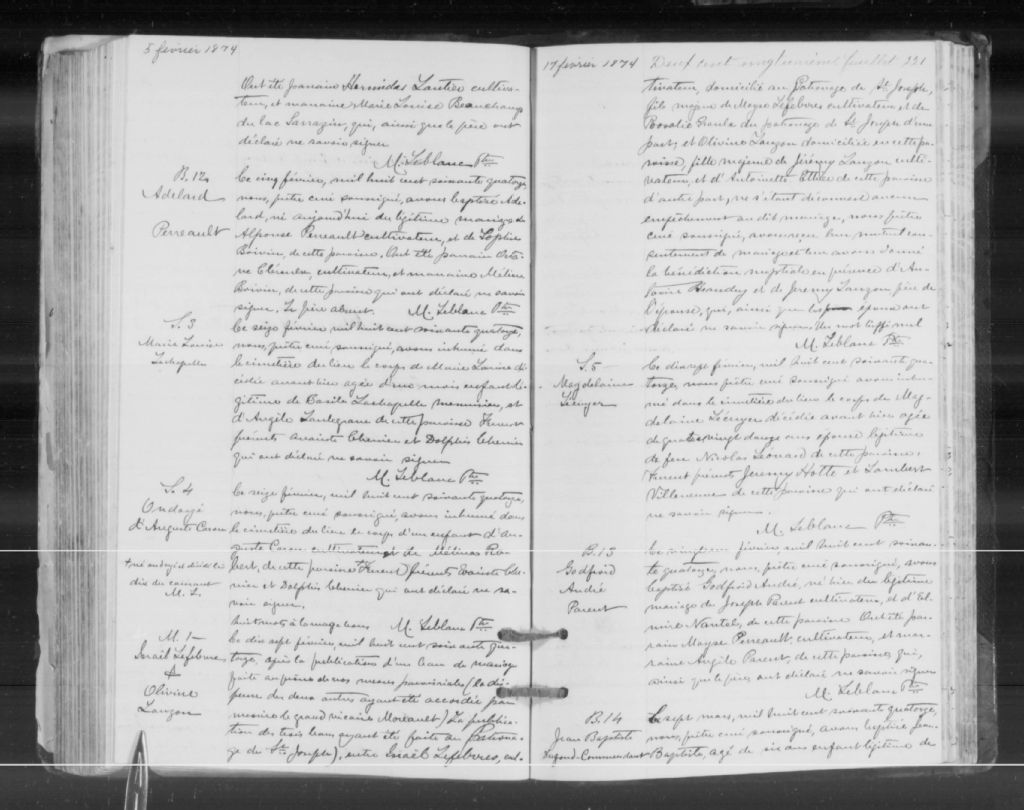 5 février 1874
Ont été parrain Hermidas Lautier cultiva-
teur, et marraine Marie Louise Beauchamp
du lac Sarrazin, qui, ainsi que le père ont
déclaré ne savoir signer
M. Leblanc Ptre
B. 12
Adélard
Perreault
Le cinq février, mil huit cent soixante quatorze,
nous, prêtre curé soussigné, avons baptisé Adé-
lard, né aujourd'hui du légitime mariage de
Alphonse Perreault cultivateur, et de Sophie
Boivin, de cette paroisse. Ont été parrain
cultivateur, et marraine Mélina
Boivin, de cette paroisse qui ont déclaré ne savoir
signer. Le père absent. M. Leblanc Ptre
S. 3
Marie Louise
Lachapelle
Le seize février, mil huit cent soixante quatorze,
nous, prêtre curé soussigné, avons inhumé dans
le cimetière du lieu le corps de Marie Louise dé-
cédée avant hier agée d'un mois enfant lé-
gitime de Basile Lachapelle menuisier, et
d'Angèle de cette paroisse. Furent
présents Chenier et Dolphis Chenier
qui ont déclaré ne savoir signer
M. Leblanc Ptre
S. 4
Ondoyé
d'Auguste Caron
Le seize février, mil huit cent soixante quatorze,
nous, prêtre curé soussigné, avons inhumé dans
le cimetière du lieu le corps d'un enfant d'Au-
guste Caron cultivateur et de Mélina Ro-
bert, de cette paroisse + Furent présents Che-
nier et Dolphis Chenier qui ont déclaré ne sa-
voir signer.
+ né ondoyé et décédé
du courant
M. L.
huit mots à la marge bons M. Leblanc Ptre
M. 1
Israël Lefebvres
&
Olivine
Lauzon
Le dix sept février, mil huit cent soixante qua-
torze, après la publication d'un ban de mariage
faite au prône de nos messes paroissiales (la dis-
pense des deux autres ayant été accordée par
messire le grand vicaire Moreault) La publica-
tion des trois bans ayant été faite au Patrona-
ge de St. Joseph), entre Israël Lefebvres, cul-
17 février 1874 Deux cent vingt unième feuillet 221
tivateur, domicilié au Patronage de St. Joseph,
fils majeur de Moyse Lefebvres cultivateur et de
Rosalie du patronage de St. Joseph d'une
part, et Olivine Lauzon domiciliée en cette pa-
roisse, fille majeure de Jérémy Lauzon culti-
vateur, et d'Antoinette de cette paroisse
d'autre part, ne s'étant découvert aucun
empêchement au dit mariage, nous prêtre
curé soussigné, avons reçu leur mutuel con-
sentement de mariage et leur avons donné
la bénédiction nuptiale en présence d'An-
toine et de Jeremy Lauzon père de
l'épouse, qui, ainsi que les époux ont
déclaré ne savoir signer. Un mot biffé nul
M. Leblanc Ptre
S. 5
Magdelaine
Lécuyer
Le dix sept février, mil huit cent soixante qua-
torze, nous prêtre curé soussigné avons inhu-
mé dans le cimetière du lieu le corps de Mag-
delaine Lécuyer décédée avant hier agée
de quatre vingt douze ans épouse légitime
de feu Nicolas Léonard de cette paroisse.
Furent présents Jeremy Hotte et Lambert
Villeneuve de cette paroisse qui ont déclaré
ne savoir signer.
M. Leblanc Ptre
B. 13
Godfroid
André
Parent
Le vingt février, mil huit cent soixan-
te quatorze, nous, prêtre curé soussigné, avons
baptisé Godfroid André, né hier du légitime
mariage de Joseph Parent cultivateur, et d'El-
mire Nantel, de cette paroisse. Ont été par-
rain Moyse Perreault, cultivateur, et mar-
raine Angèle Parent, de cette paroisse, qui,
ainsi que le père, ont déclaré ne savoir signer
M. Leblanc Ptre
B. 14
Jean Baptiste
Commendant
Le sept mars, mil huit cent soixante quatorze,
nous, prêtre curé soussigné, avons baptisé Jean
Baptiste, agé de six ans enfant légitime de